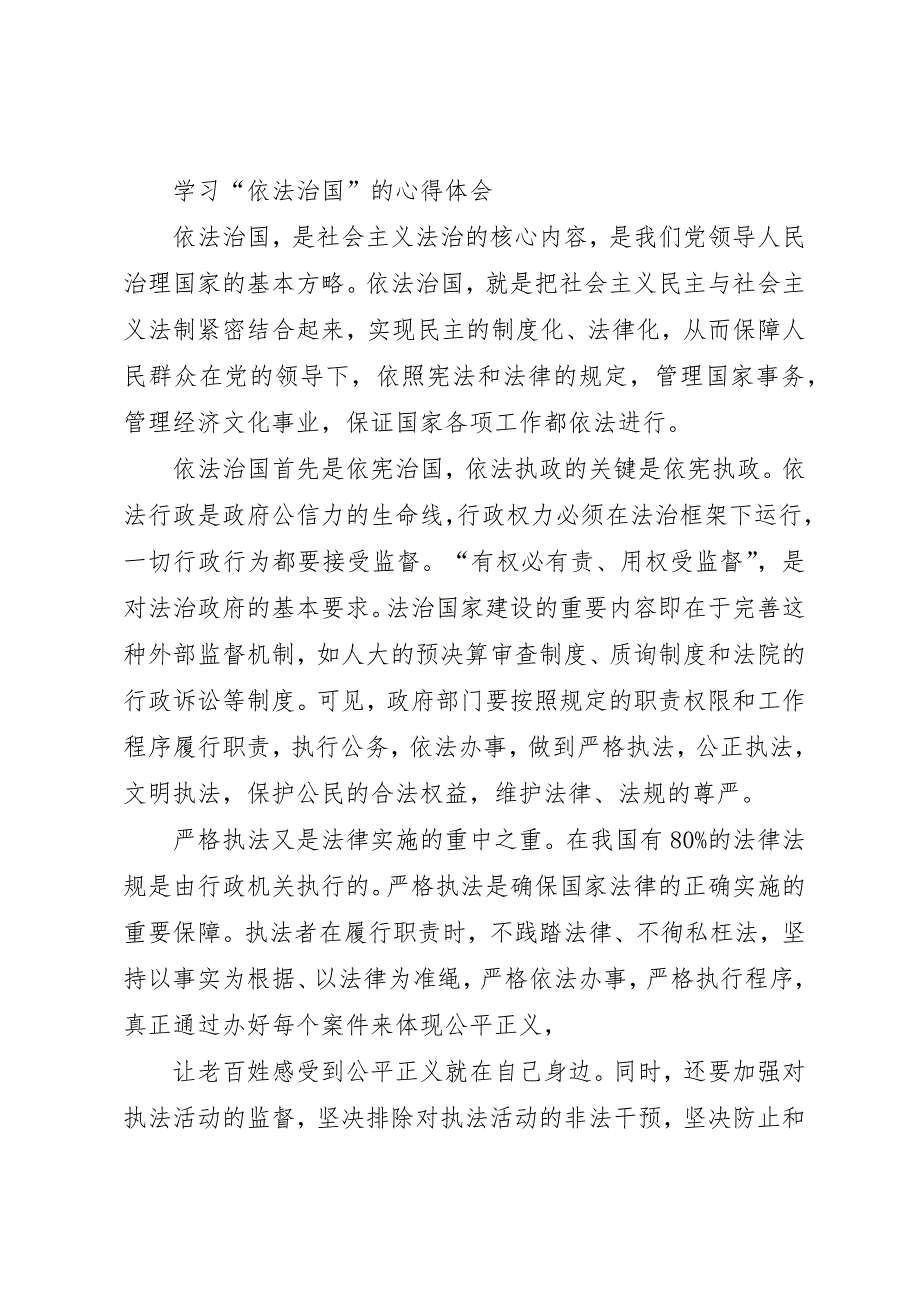 学习“依法治国”的心得体会
依法治国，是社会主义法治的核心内容，是我们党领导人民
治理国家的基本方略。依法治国，就是把社会主义民主与社会主
义法制紧密结合起来，实现民主的制度化、法律化，从而保障人
民群众在党的领导下，依照宪法和法律的规定，管理国家事务，
管理经济文化事业，保证国家各项工作都依法进行。
依法治国首先是依宪治国，依法执政的关键是依宪执政。依
法行政是政府公信力的生命线，行政权力必须在法治框架下运行，
一切行政行为都要接受监督。“有权必有责、用权受监督”，是
对法治政府的基本要求。法治国家建设的重要内容即在于完善这
种外部监督机制，如人大的预决算审查制度、质询制度和法院的
行政诉讼等制度。可见，政府部门要按照规定的职责权限和工作
程序履行职责，执行公务，依法办事，做到严格执法，公正执法，
文明执法，保护公民的合法权益，维护法律、法规的尊严。
严格执法又是法律实施的重中之重。在我国有80%的法律法
规是由行政机关执行的。严格执法是确保国家法律的正确实施的
重要保障。执法者在履行职责时，不践踏法律、不徇私枉法，坚
持以事实为根据、以法律为准绳，严格依法办事，严格执行程序，
真正通过办好每个案件来体现公平正义，
让老百姓感受到公平正义就在自己身边。同时，还要加强对
执法活动的监督，坚决排除对执法活动的非法干预，坚决防止和